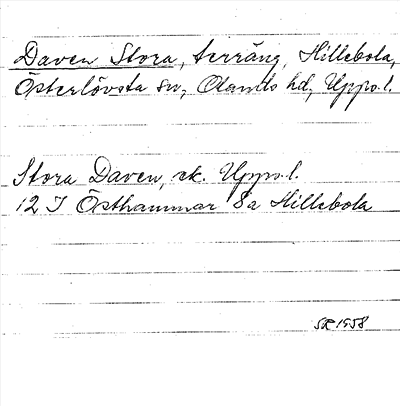 Daven Stora, terräng, Hillebola,
Österlövsta sn, Olands hd, Upps.l.
Stora Daven, ek. Upps.l.
12 I Östhammar 8a Hillebola
SR 1958